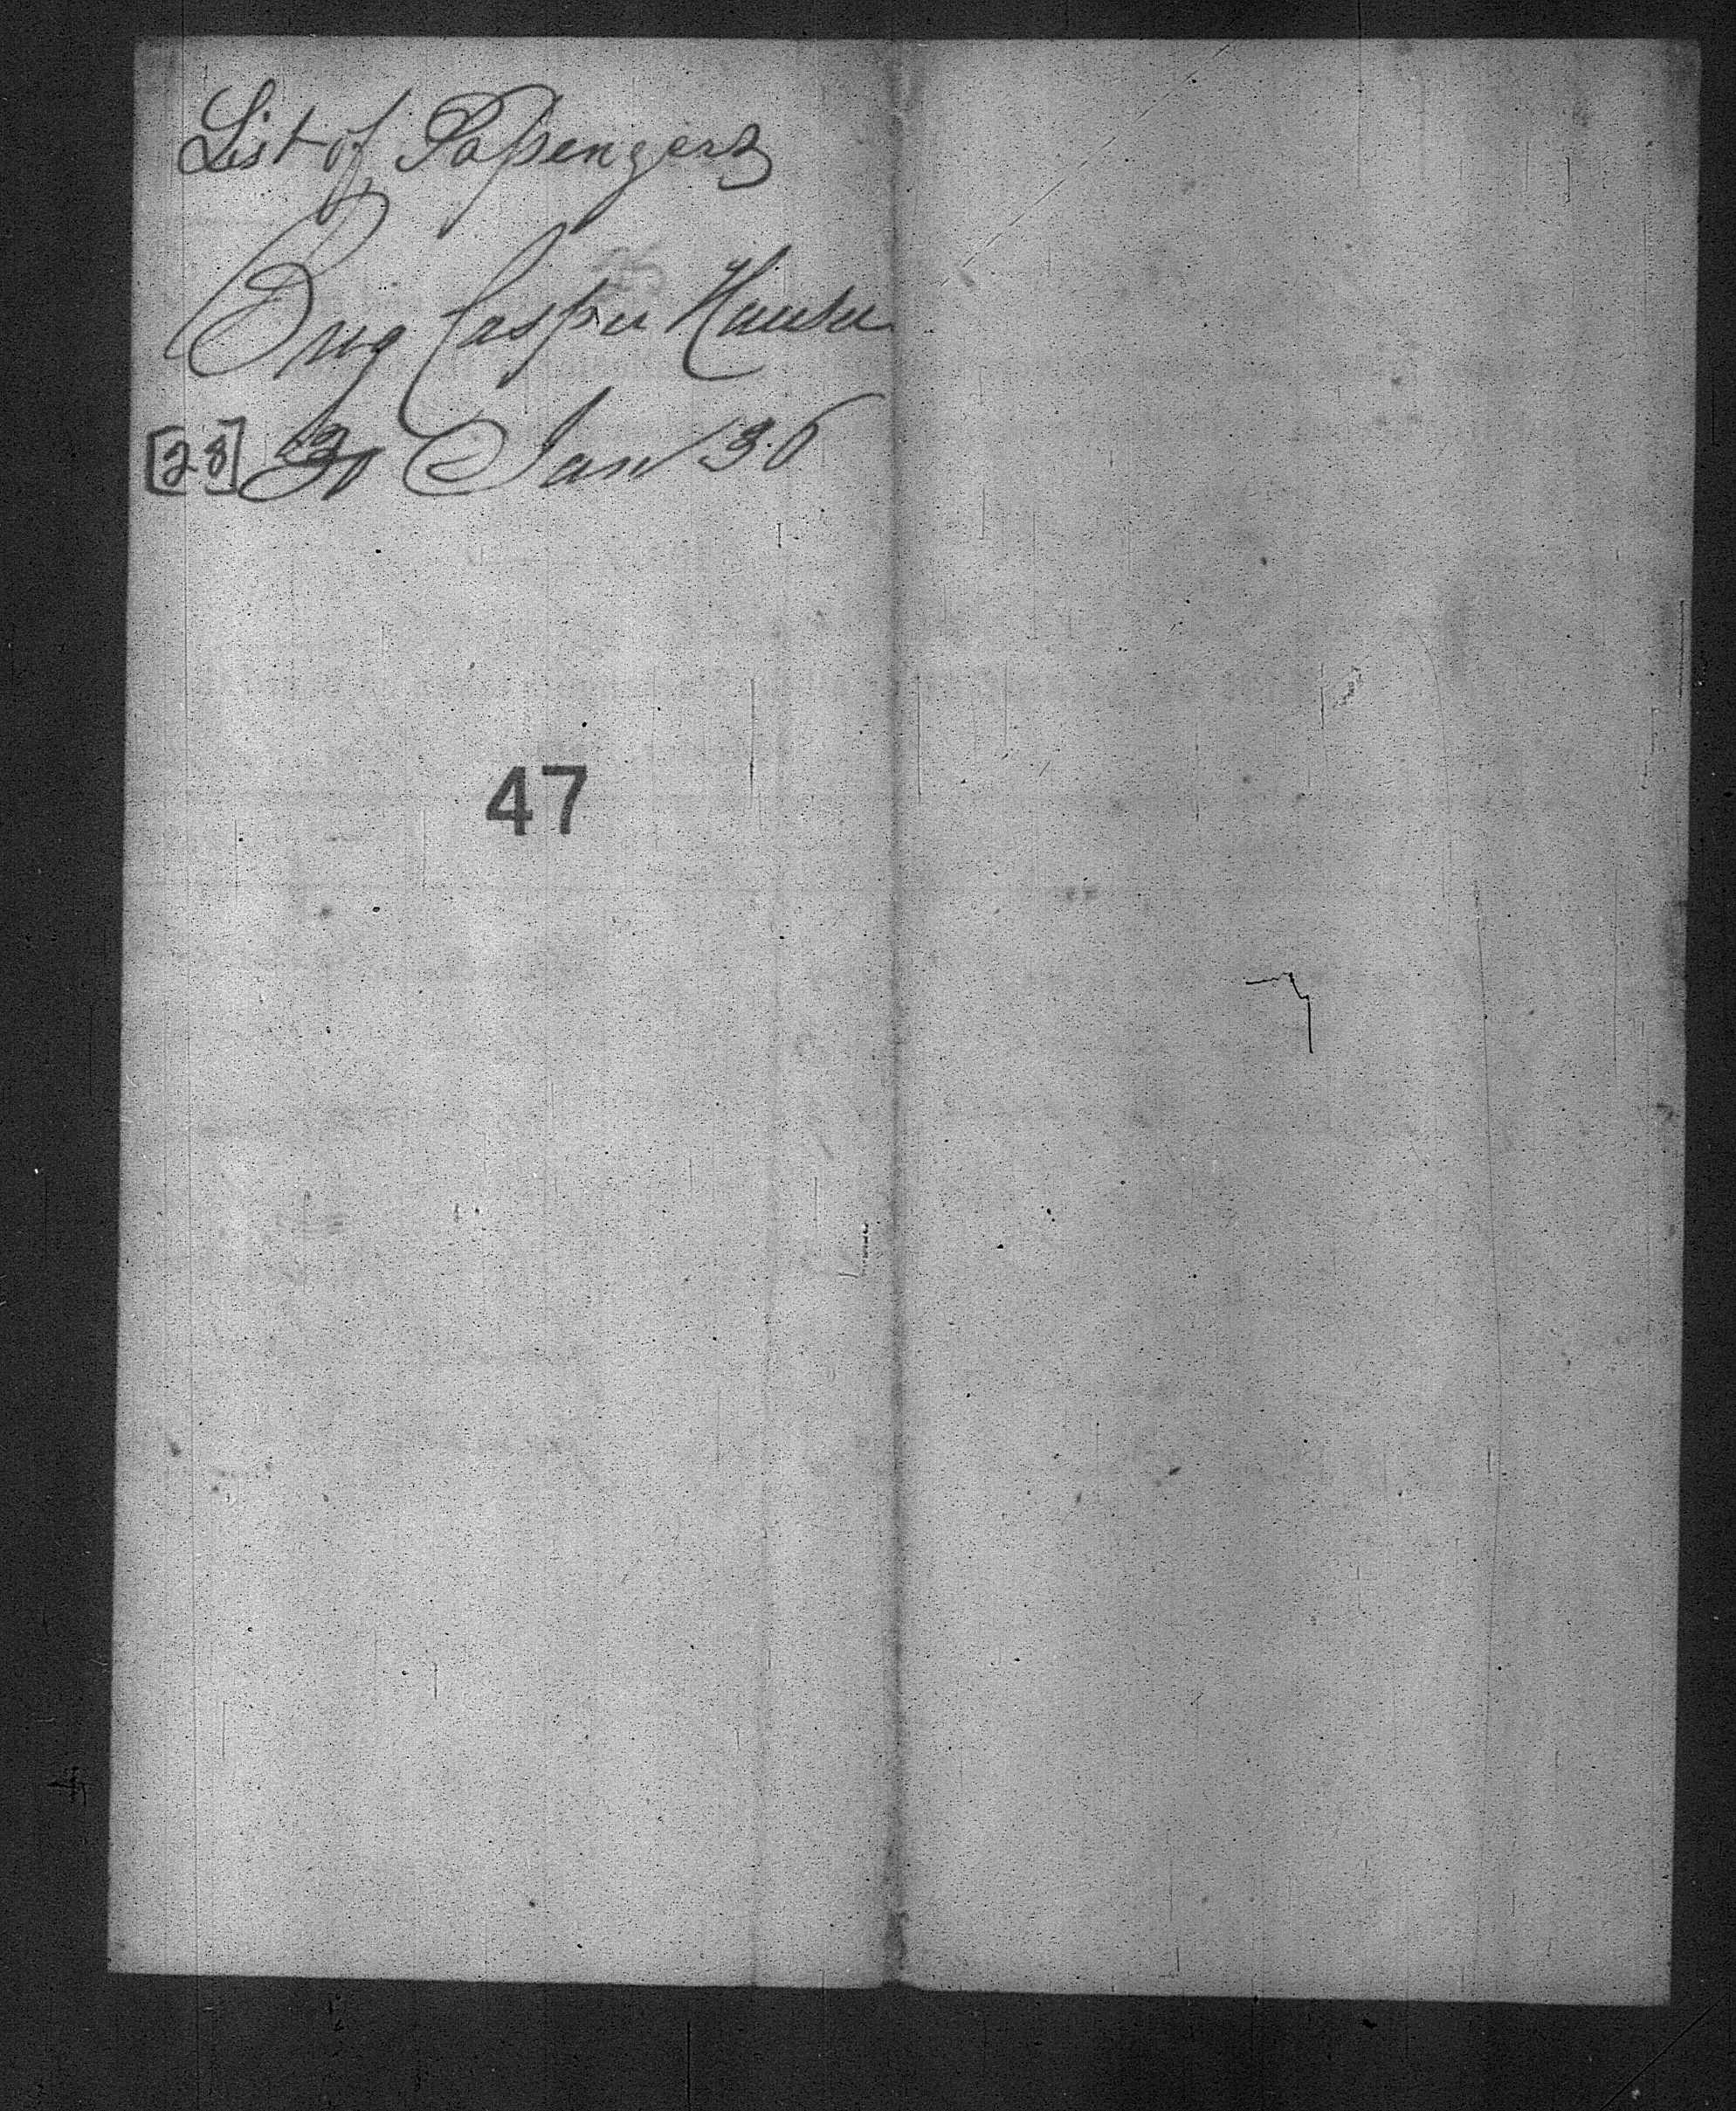 List of Passengers
Brig Casper Hauser
[28] Jan 36
47